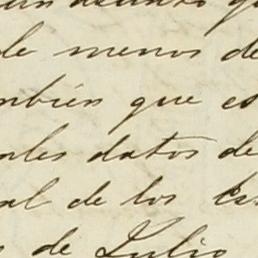 asunto q
de menos de
mbién que es
ales datos de
al de los Es
s de Julio